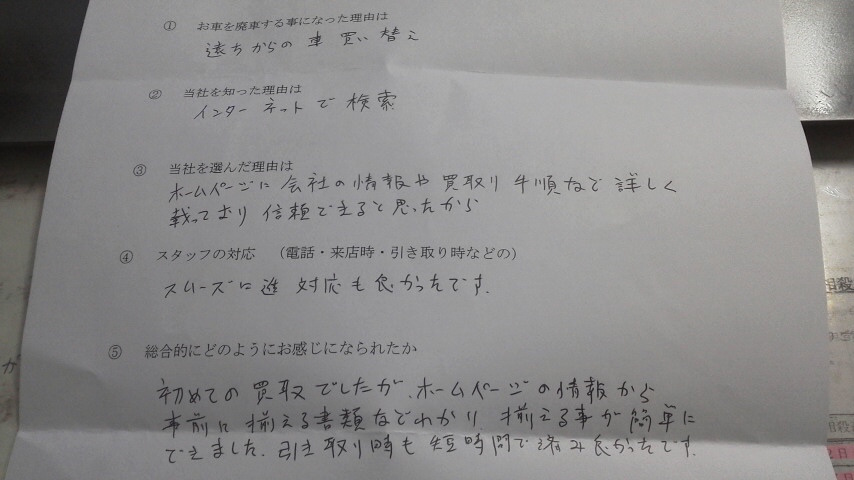 ① お車を廃車する事になった理由は
違うちからの車買い替え
② 当社を知った理由は
インターネットで検索
③ 当社を選んだ理由は
ホームページに会社の情報や買取り手順など詳しく
載っており信頼できると思ったから
④ スタッフの対応 (電話・来店時・引き取り時などの)
スムーズに進 対応も良かったです.
⑤ 総合的にどのようにお感じになられたか
初めての買取でしたが、ホームページの情報から
事前に揃える書類などわかり 揃える事が簡単に
できました. 引き取り時も短時間で済み良かったです.
相殺
相殺